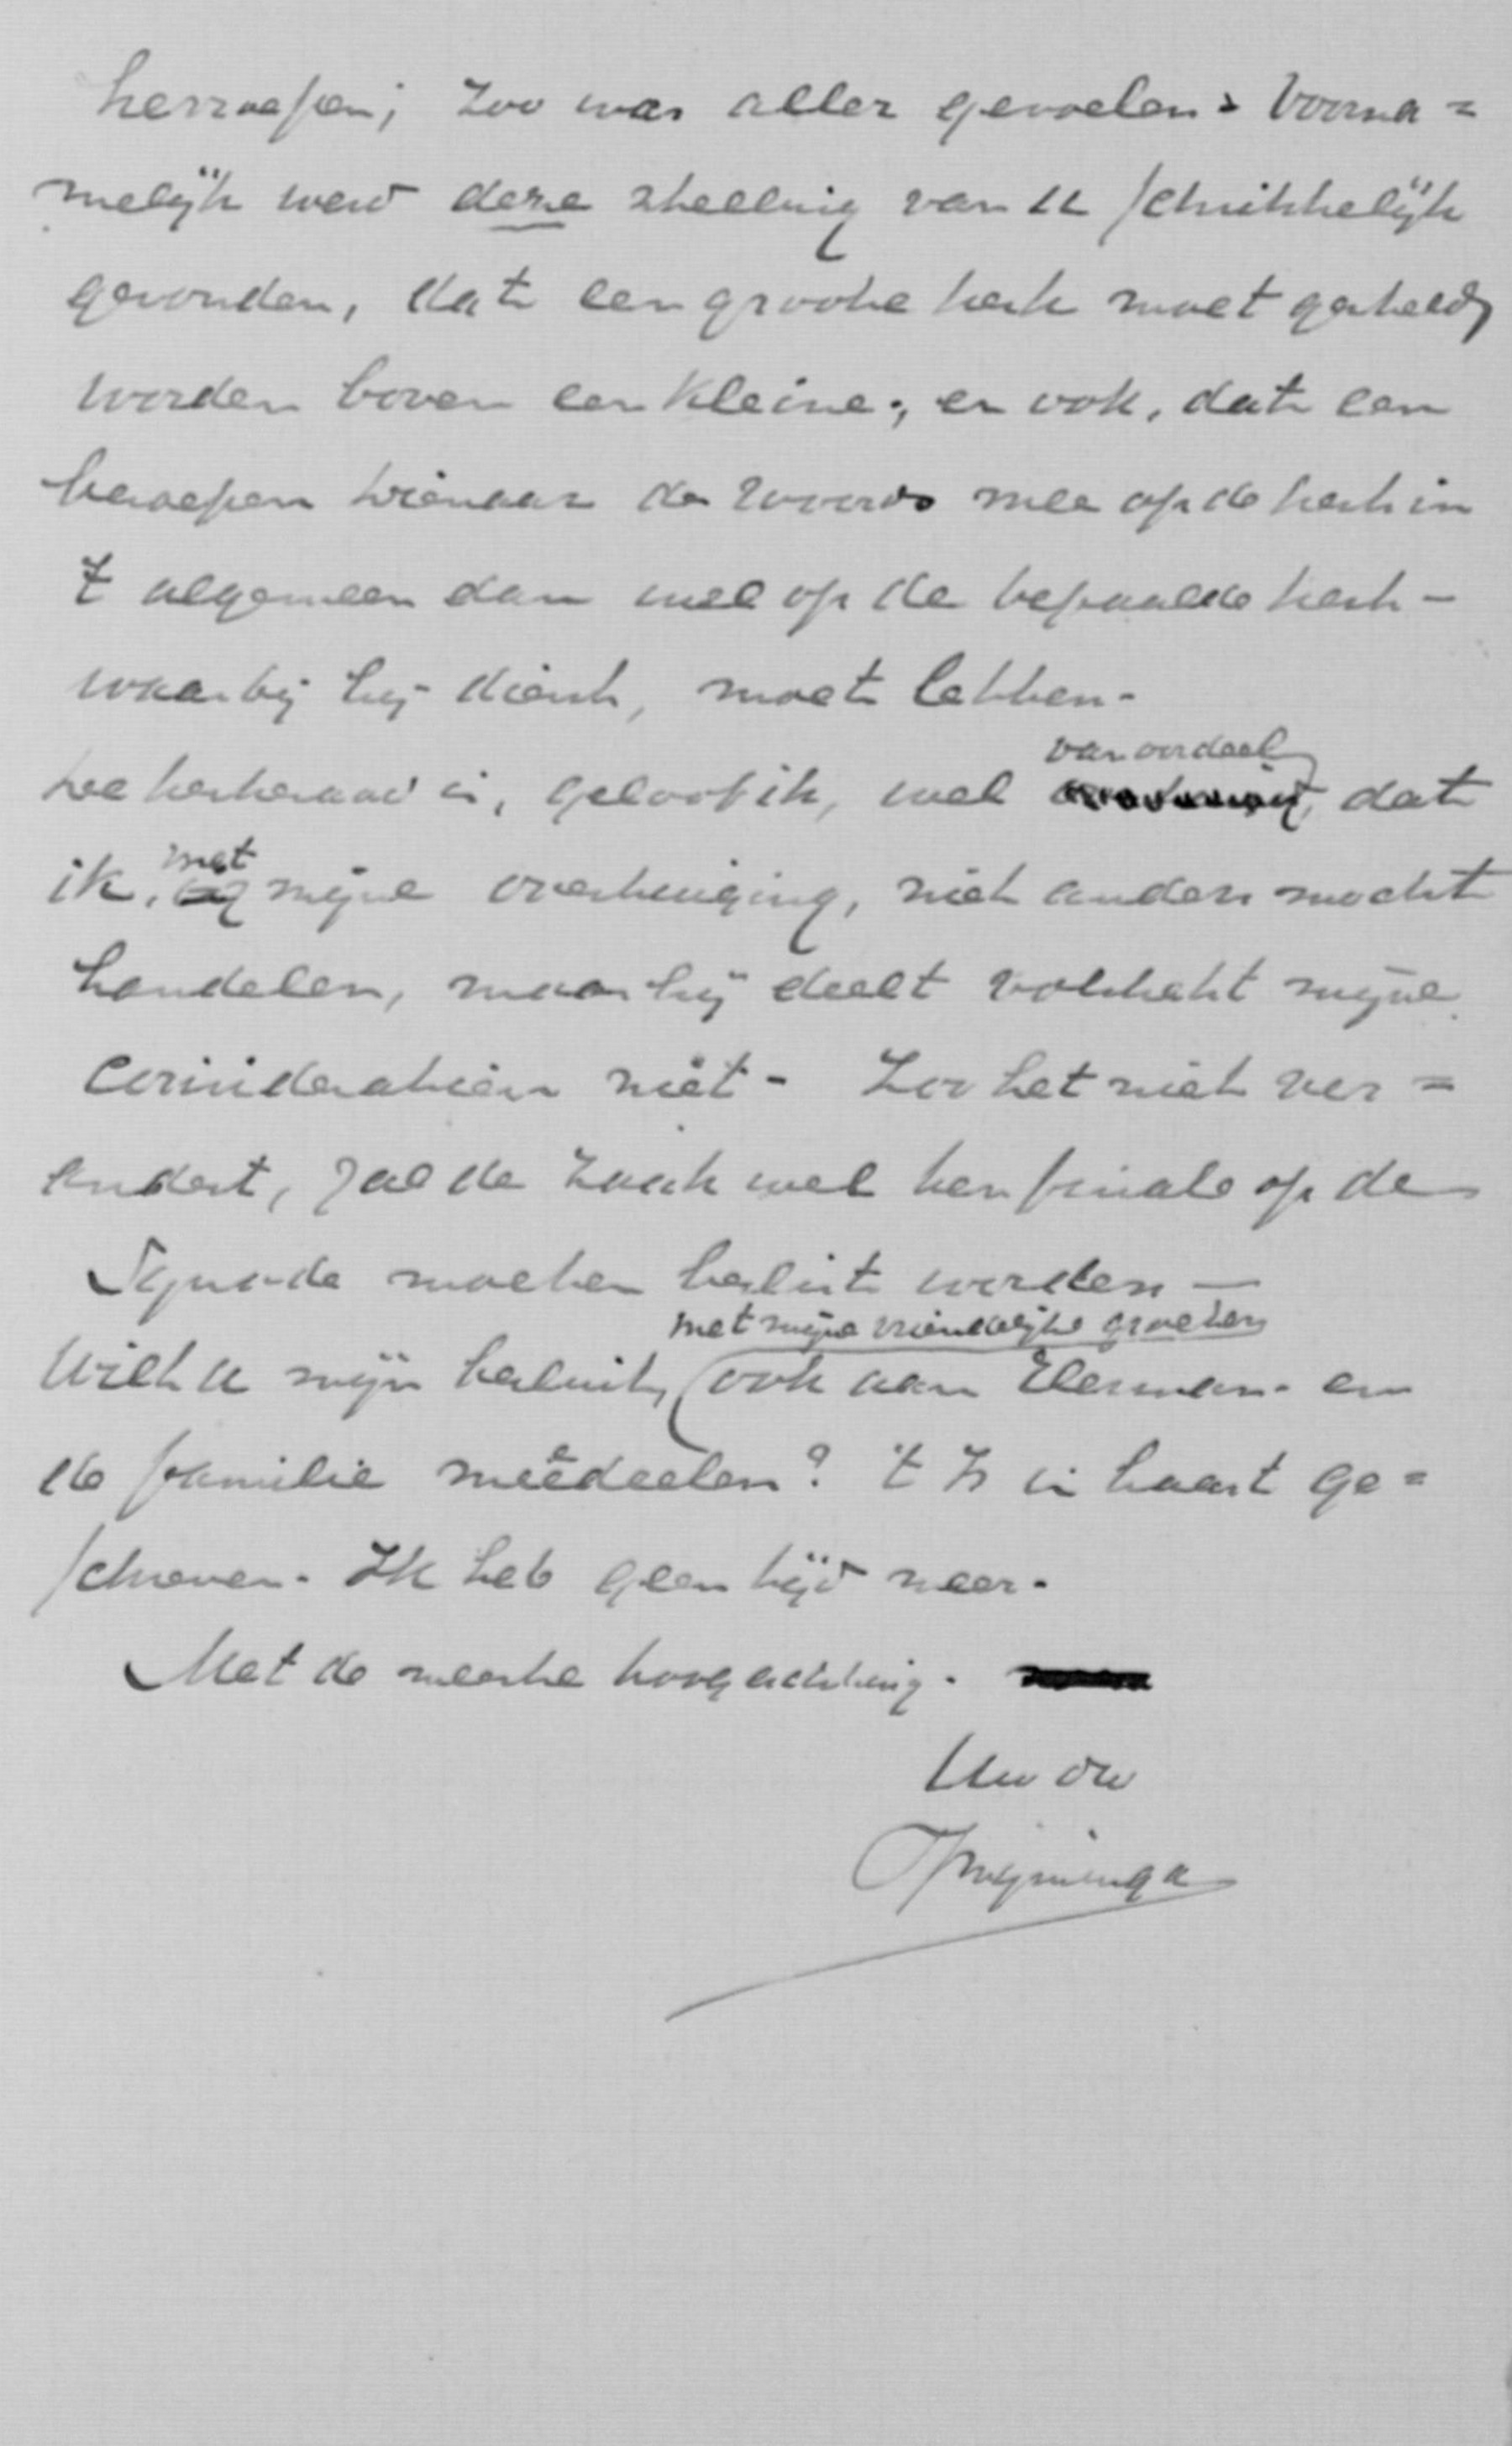 herroepen; Zoo was aller gevoelen. Voorna=
melijk werd deze stelling van U schrikkelijk
gevonden, dat een groote kerk moet gesteld
worden boven een kleine; en ook, dat een
beroepen Dienaar des Woords mee op de kerk in
't algemeen dan wel op de bepaalde kerk -
waarbij hij dient, moet letten.
De kerkeraad is, geloof ik, wel van oordeel, dat
ik, met mijne overtuiging, niet anders mocht
handelen, maar hij deelt volstrekt mijne
consideratien niet - Zoo het niet ver=
andert, zal de zaak wel ten finale op de
Synode moeten beslist worden —
met mijne vriendelijke groeten
Wilt u mijn besluit, ook aan en
de familie meêdeelen? 't Is in haast ge=
schreven. Ik heb geen tijd meer.
Met de meeste hoogachting.
Uw dw